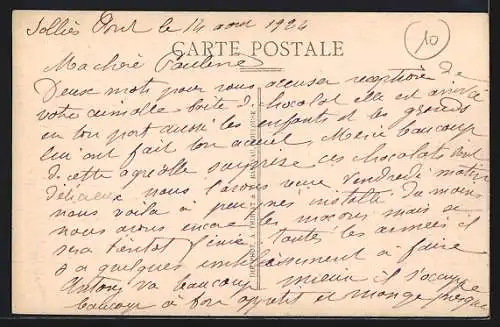 Solliès Pont le 14 aout 1924
10
CARTE POSTALE
Ma chère Pauline
Deux mots pour vous accuser reception de
votre aimable boite de chocolat elle est arrivée
en bon port aussi les enfants et les grands
lui ont fait bon accueil. Merci beaucoup
de cette agréable surprise ces chocolats sont
délicieux nous l'avons reçue vendredi matin
nous voila à peu près installé du moins
nous avons encore les maçons mais ce
sera bientot fini. toutes les années il
y a quelques à faire
Antony va beaucoup mieux il s'occupe
beaucoup a bon appetit et mange presque